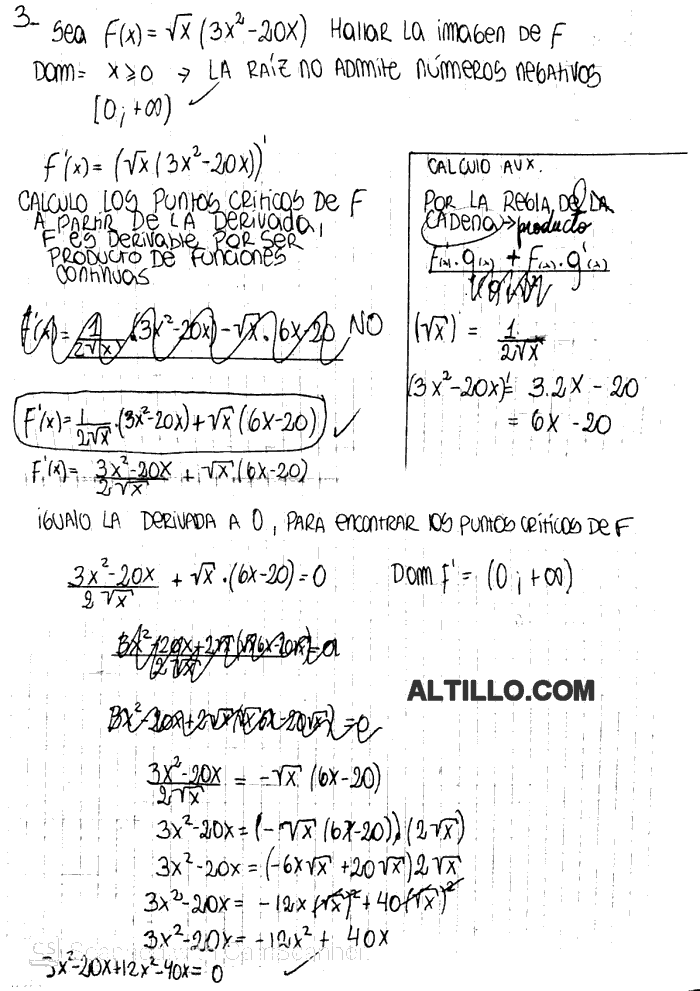 3- Sea F(x) = √x (3x² - 20x) Hallar la imagen de F
Dom = x ≥ 0 → LA RAÍZ NO ADMITE NÚMEROS NEGATIVOS
[0; +∞) ✓
f'(x) = (√x (3x² - 20x))'
CALCULO LOS PUNTOS CRÍTICOS DE F
A PARTIR DE LA DERIVADA,
F ES DERIVABLE POR SER
PRODUCTO DE FUNCIONES
CONTINUAS
f'(x) = 1/(2√x) · (3x² - 20x) - √x · 6x - 20 NO
F'(x) = 1/(2√x) · (3x² - 20x) + √x (6x - 20) ✓
F'(x) = (3x² - 20x)/(2√x) + √x · (6x - 20)
CALCULO AUX.
POR LA REGLA DE LA
CADENA → producto
F'(x) · g(x) + F(x) · g'(x)
(√x)' = 1/(2√x)
(3x² - 20x)' = 3.2x - 20
= 6x - 20
IGUALO LA DERIVADA A 0, PARA ENCONTRAR LOS PUNTOS CRÍTICOS DE F
(3x² - 20x)/(2√x) + √x · (6x - 20) = 0 Dom f' = (0; +∞)
ALTILLO.COM
(3x² - 20x)/(2√x) = -√x (6x - 20)
3x² - 20x = (-√x (6x - 20)) · (2√x)
3x² - 20x = (-6x√x + 20√x) 2√x
3x² - 20x = -12x (√x)² + 40 (√x)²
3x² - 20x = -12x² + 40x
3x² - 20x + 12x² - 40x = 0 ✓